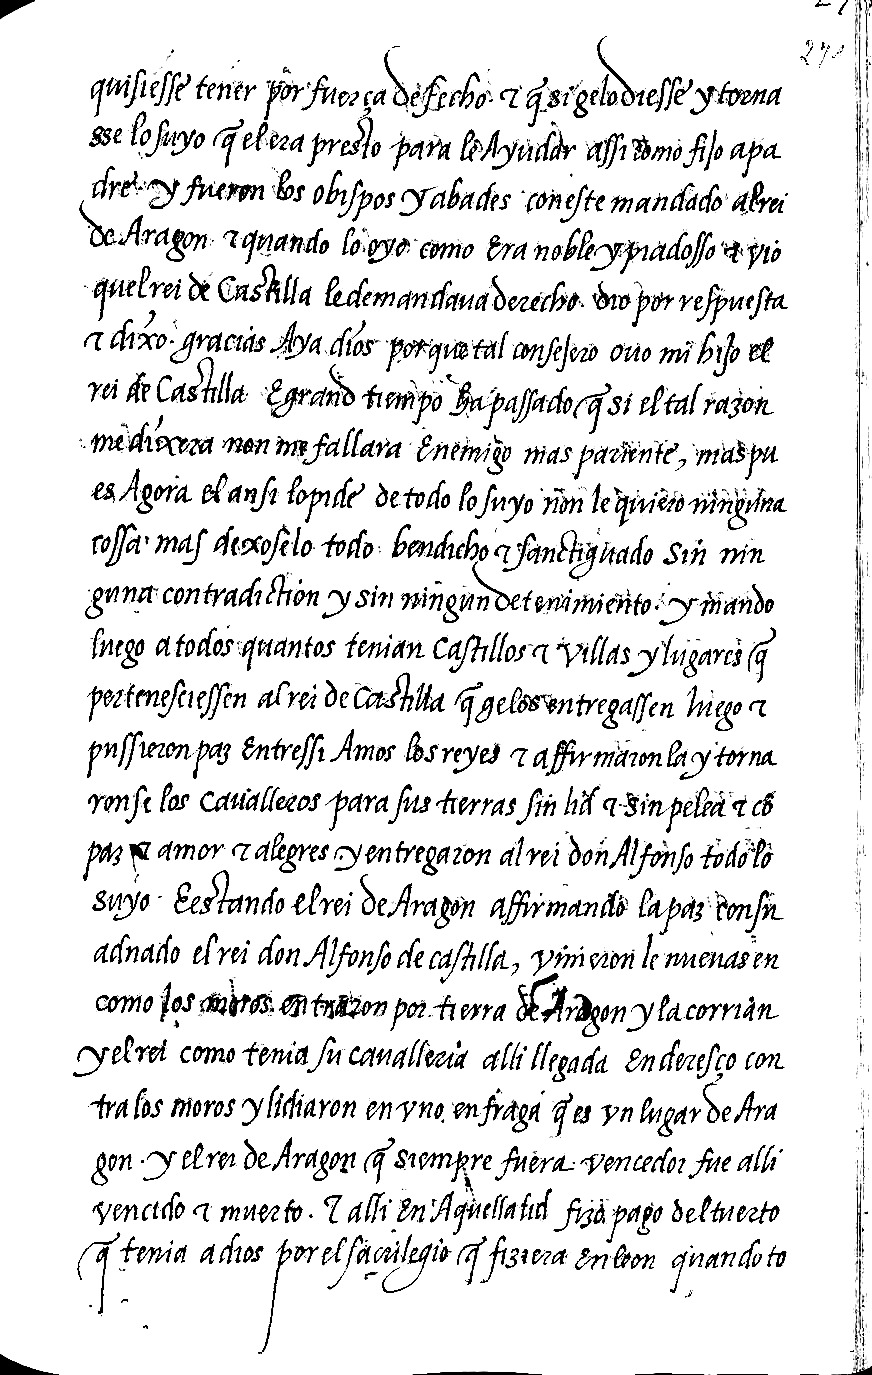 270
quisiesse tener por fuerça de fecho · τ q̃ si gelo diesse y torna
sse lo suyo q̃ el era presto para le Ayudar assi como fijo a pa
dre · y fueron los obispos y abades con este mandado al rei
de Aragon τ quando lo oyo como Era noble y piadosso τ vio
quel rei de Castilla le demandava derecho · dio por respuesta
τ dixo · gracias Aya dios porque tal consejero ovo mi hijo el
rei de Castilla E grand tiempo ha passado q̃ si el tal razon
me dixera non me fallara Enemigo mas pariente, mas pu
es Agora el ansi lo pide de todo lo suyo non le quiero ninguna
cossa · mas dexoselo todo bendicho τ sanctiguado sin nin
guna contradiction y sin ningun detenimiento · y mando
luego a todos quantos tenian Castillos τ villas y lugares q̃
pertenesciessen al rei de Castilla q̃ gelos entregassen luego τ
pussieron paz Entressi Amos los reyes τ affirmaron la y torna
ronse los cavalleros para sus tierras sin lid τ sin pelea τ cõ
paz τ amor τ alegres · y entregaron al rei don Alfonso todo lo
suyo · E estando el rei de Aragon affirmando la paz con su
adnado el rei don Alfonso de castilla, vinieron le nuevas en
como los moros entraron por tierra de Aragon y la corrian
y el rei como tenia su cavalleria alli llegada Enderesço con
tra los moros y lidiaron en vno en fraga q̃ es vn lugar de Ara
gon · y el rei de Aragon q̃ siempre fuera vencedor fue alli
vencido τ muerto · τ alli En Aquella lid fizo pago del tuerto
q̃ tenia a dios por el sacrilegio q̃ fiziera En leon quando to